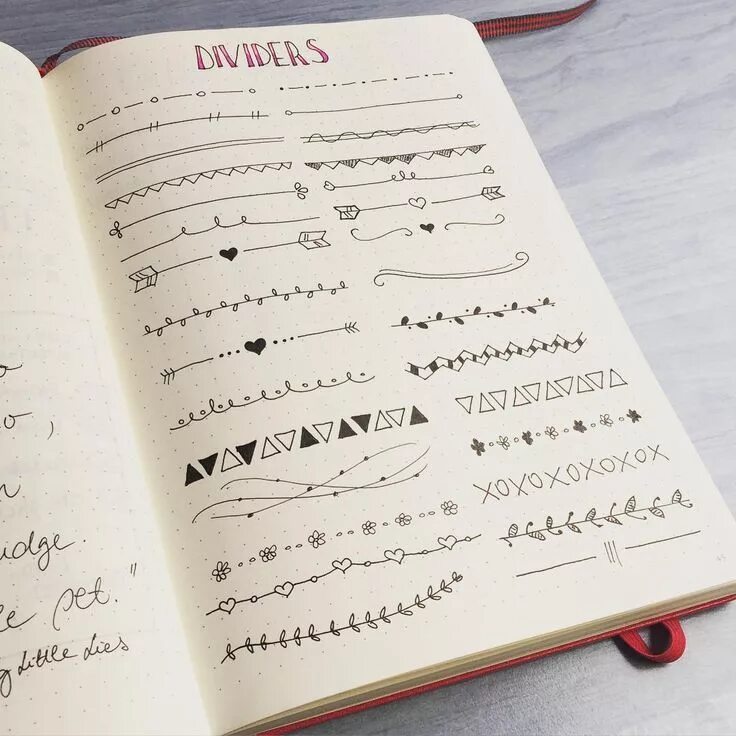 DIVIDERS
XOXOXOXOXOXOX
udge.
le pet."
little lies